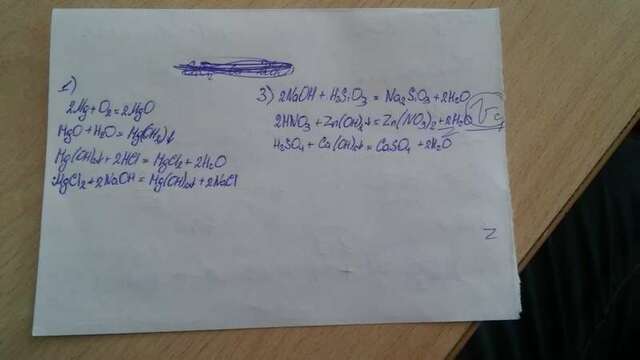 2)
2Mg + O₂ = 2MgO
MgO + H₂O = Mg(OH)₂↓
Mg(OH)₂↓ + 2HCl = MgCl₂ + 2H₂O
MgCl₂ + 2NaOH = Mg(OH)₂↓ + 2NaCl
3) 2NaOH + H₂SiO₃ = Na₂SiO₃ + 2H₂O
2HNO₃ + Zn(OH)₂↓ = Zn(NO₃)₂ + 2H₂O
H₂SO₄ + Ca(OH)₂↓ = CaSO₄ + 2H₂O